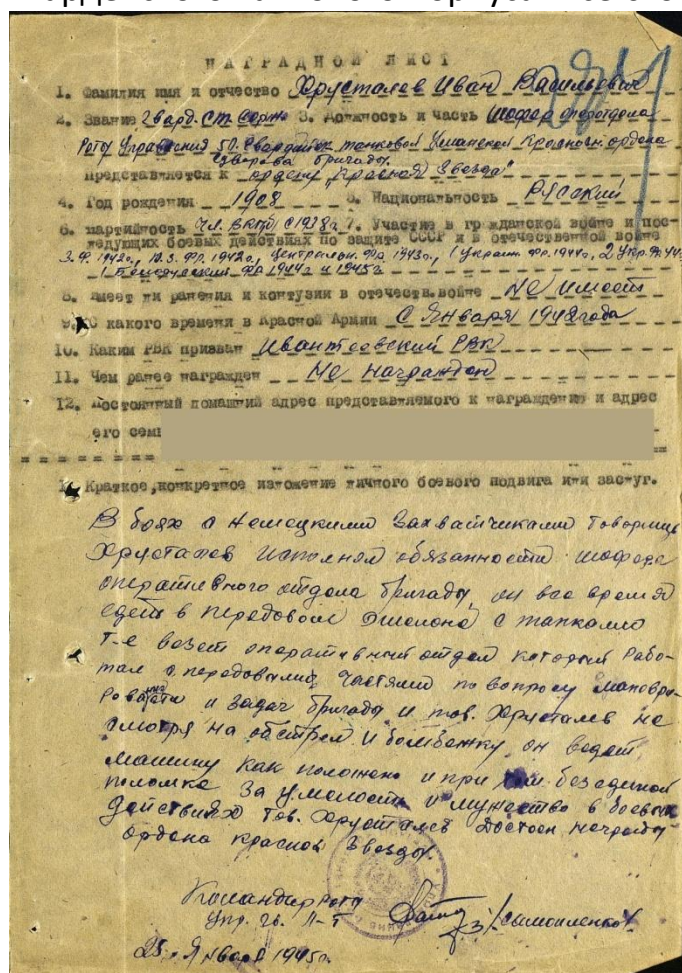 НАГРАДНОЙ ЛИСТ
1. Фамилия имя и отчество Хрусталев Иван Васильевич
2. Звание гвард. ст. серж 3. Должность и часть шофер оперотдела
Роты Управления 50 Гвардейск танковой Уманской Краснозн. ордена
Суворова бригады.
Представляется к ордену "Красная Звезда"
4. Год рождения 1908 5. Национальность Русский
6. Партийность Чл. ВКПб с 1938г 7. Участие в гражданской войне и пос-
ледующих боевых действиях по защите СССР и в отечественной войне
З.Ф. 1942г., Ю.З. Фр. 1942г., Центральн. Фр. 1943г., 1 Украин Фр. 1944г., 2 Укр. Ф. 44
1 Белорусский Фр 1944г и 1945г
8. Имеет ли ранения и контузии в отечеств. войне Не имеет
9. С какого времени в Красной Армии С Января 1942 года
10. Каким РВК призван Ивантеевский РВК
11. Чем ранее награжден Не награжден
12. Постоянный домашний адрес представляемого к награждению и адрес
его семь
Краткое, конкретное изложение личного боевого подвига или заслуг.
В боях с немецкими Захватчиками товарищ
Хрусталев исполнял обязанности шофера
оперативного отдела бригады, он все время
едет в передовом эшелоне с танками
т-е возет оперативный отдел который Рабо-
тал с передовыми частями по вопросу маневри-
рования и задач бригады и тов. Хрусталев не
смотря на обстрел и бомбежку, он ведет
машину как положено и при без единой
поломки За умелость и мужество в боевых
действиях Тов. Хрусталев достоен награды
ордена красной Звезды.
Командир роты
Упр. гв. Л-т /Самойленко/
25. Января 1945г.